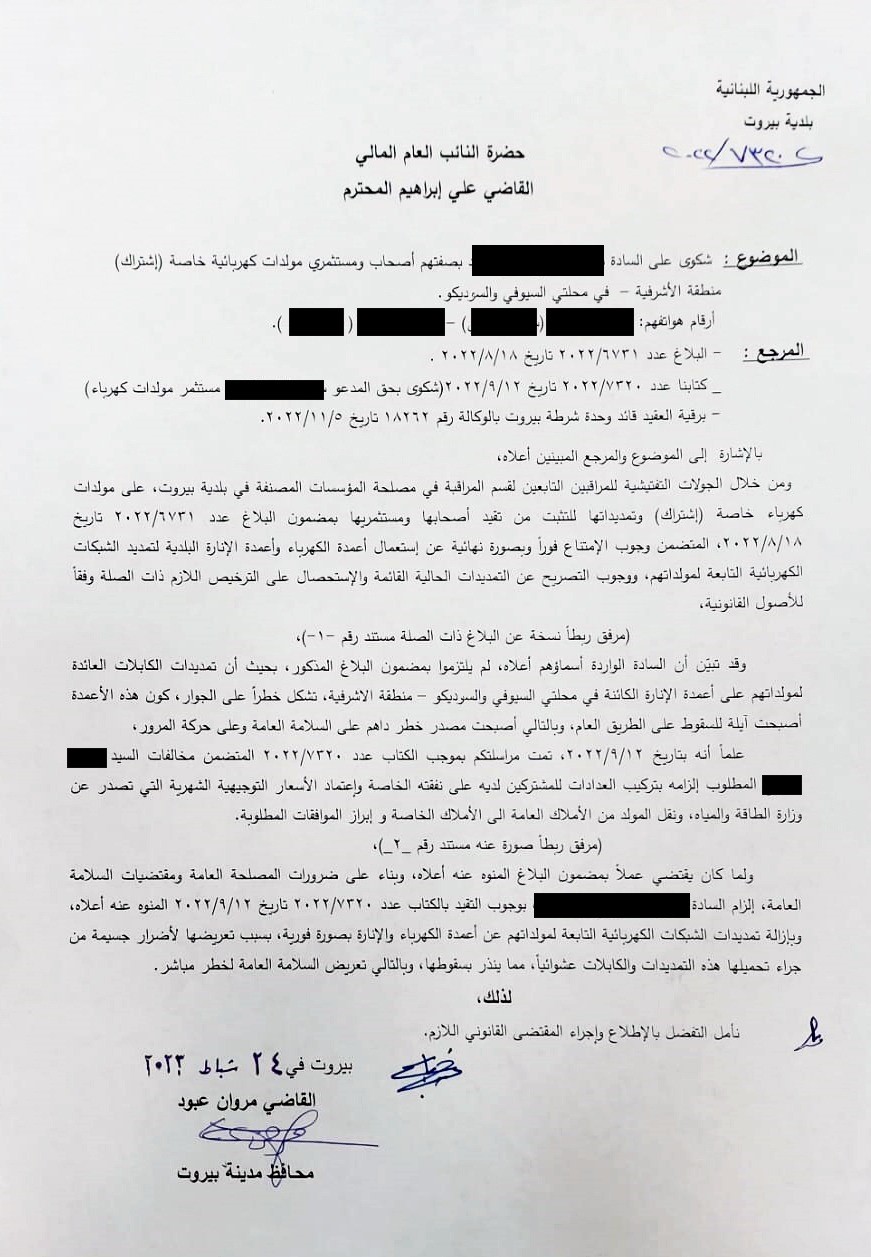 الجمهورية اللبنانية
بلدية بيروت
٢٠٢٢/٧٣٢٠
حضرة النائب العام المالي
القاضي علي إبراهيم المحترم
الموضوع : شكوى على السادة بصفتهم أصحاب ومستثمري مولدات كهربائية خاصة (إشتراك)
منطقة الأشرفية – في محلتي السيوفي والسوديكو.
أرقام هواتفهم: ( ) – ( ).
المرجع : – البلاغ عدد ٢٠٢٢/٦٧٣١ تاريخ ٢٠٢٢/٨/١٨ .
_ كتابنا عدد ٢٠٢٢/٧٣٢٠ تاريخ ٢٠٢٢/٩/١٢(شكوى بحق المدعو مستثمر مولدات كهرباء)
– برقية العقيد قائد وحدة شرطة بيروت بالوكالة رقم ١٨٢٦٢ تاريخ ٢٠٢٢/١١/٥.
بالإشارة إلى الموضوع والمرجع المبينين أعلاه،
ومن خلال الجولات التفتيشية للمراقبين التابعين لقسم المراقبة في مصلحة المؤسسات المصنفة في بلدية بيروت، على مولدات
كهرباء خاصة (إشتراك) وتمديداتها للتثبت من تقيد أصحابها ومستثمريها بمضمون البلاغ عدد ٢٠٢٢/٦٧٣١ تاريخ
٢٠٢٢/٨/١٨، المتضمن وجوب الإمتناع فوراً وبصورة نهائية عن إستعمال أعمدة الكهرباء وأعمدة الإنارة البلدية لتمديد الشبكات
الكهربائية التابعة لمولداتهم، ووجوب التصريح عن التمديدات الحالية القائمة والإستحصال على الترخيص اللازم ذات الصلة وفقاً
للأصول القانونية،
(مرفق ربطاً نسخة عن البلاغ ذات الصلة مستند رقم –١–)،
وقد تبيّن أن السادة الواردة أسماؤهم أعلاه، لم يلتزموا بمضمون البلاغ المذكور، بحيث أن تمديدات الكابلات العائدة
لمولداتهم على أعمدة الإنارة الكائنة في محلتي السيوفي والسوديكو – منطقة الاشرفية، تشكل خطراً على الجوار، كون هذه الأعمدة
أصبحت آيلة للسقوط على الطريق العام، وبالتالي أصبحت مصدر خطر داهم على السلامة العامة وعلى حركة المرور،
علماً أنه بتاريخ ٢٠٢٢/٩/١٢، تمت مراسلتكم بموجب الكتاب عدد ٢٠٢٢/٧٣٢٠ المتضمن مخالفات السيد
المطلوب إلزامه بتركيب العدادات للمشتركين لديه على نفقته الخاصة وإعتماد الأسعار التوجيهية الشهرية التي تصدر عن
وزارة الطاقة والمياه، ونقل المولد من الأملاك العامة الى الأملاك الخاصة و إبراز الموافقات المطلوبة.
(مرفق ربطاً صورة عنه مستند رقم _٢_)،
ولما كان يقتضي عملاً بمضمون البلاغ المنوه عنه أعلاه، وبناء على ضرورات المصلحة العامة ومقتضيات السلامة
العامة، إلزام السادة بوجوب التقيد بالكتاب عدد ٢٠٢٢/٧٣٢٠ تاريخ ٢٠٢٢/٩/١٢ المنوه عنه أعلاه،
وبإزالة تمديدات الشبكات الكهربائية التابعة لمولداتهم عن أعمدة الكهرباء والإنارة بصورة فورية، بسبب تعريضها لأضرار جسيمة من
جراء تحميلها هذه التمديدات والكابلات عشوائياً، مما ينذر بسقوطها، وبالتالي تعريض السلامة العامة لخطر مباشر.
لذلك،
نأمل التفضل بالإطلاع وإجراء المقتضى القانوني اللازم.
بيروت في ٢٤ شباط ٢٠٢٣
القاضي مروان عبود
محافظ مدينة بيروت